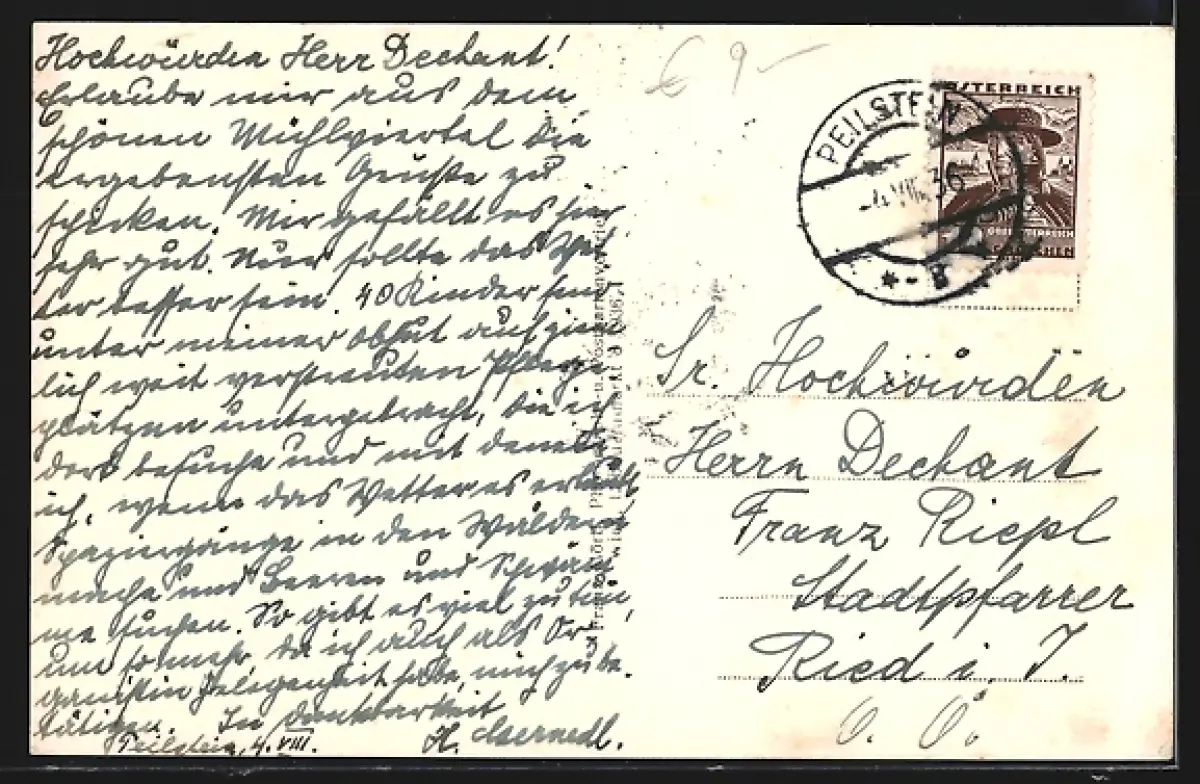 Hochwürden Herr Dechant!
Erlaube mir aus dem
schönen Mühlviertel die
ergebensten Grüße zu
schicken. Mir gefällt es hier
sehr gut. Nur sollte das Wet-
ter besser sein. 40 Kinder sind
unter meiner Obhut auf ziem
lich weit verstreuten Pflege
plätzen untergebracht, die ich
dort besuche und mit denen
ich, wenn das Wetter es erlaubt
Spaziergänge in den Wäldern
mache und Beeren und Schwäm
me suchen. So gibt es viel zu tun,
um so mehr, da ich auch als Or
ganistin Gelegenheit habe, mich zu be-
tätigen. In Dankbarkeit
Peilstein, 4. VIII. H.
€ 9-
PEILSTEIN
-4. VIII. 36
* - a
ÖSTERREICH
OBERÖSTERREICH
GROSCHEN
Sr. Hochwürden
Herrn Dechant
Franz Riepl
Stadtpfarrer
Ried i. I.
O. Ö.